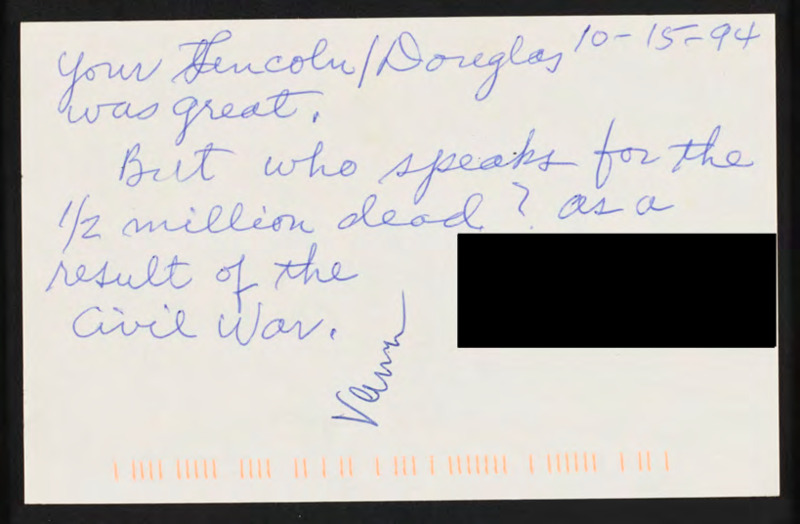 Your Lincoln/Douglas 10-15-94
was great.
But who speaks for the
1/2 million dead? as a
result of the
Civil War.